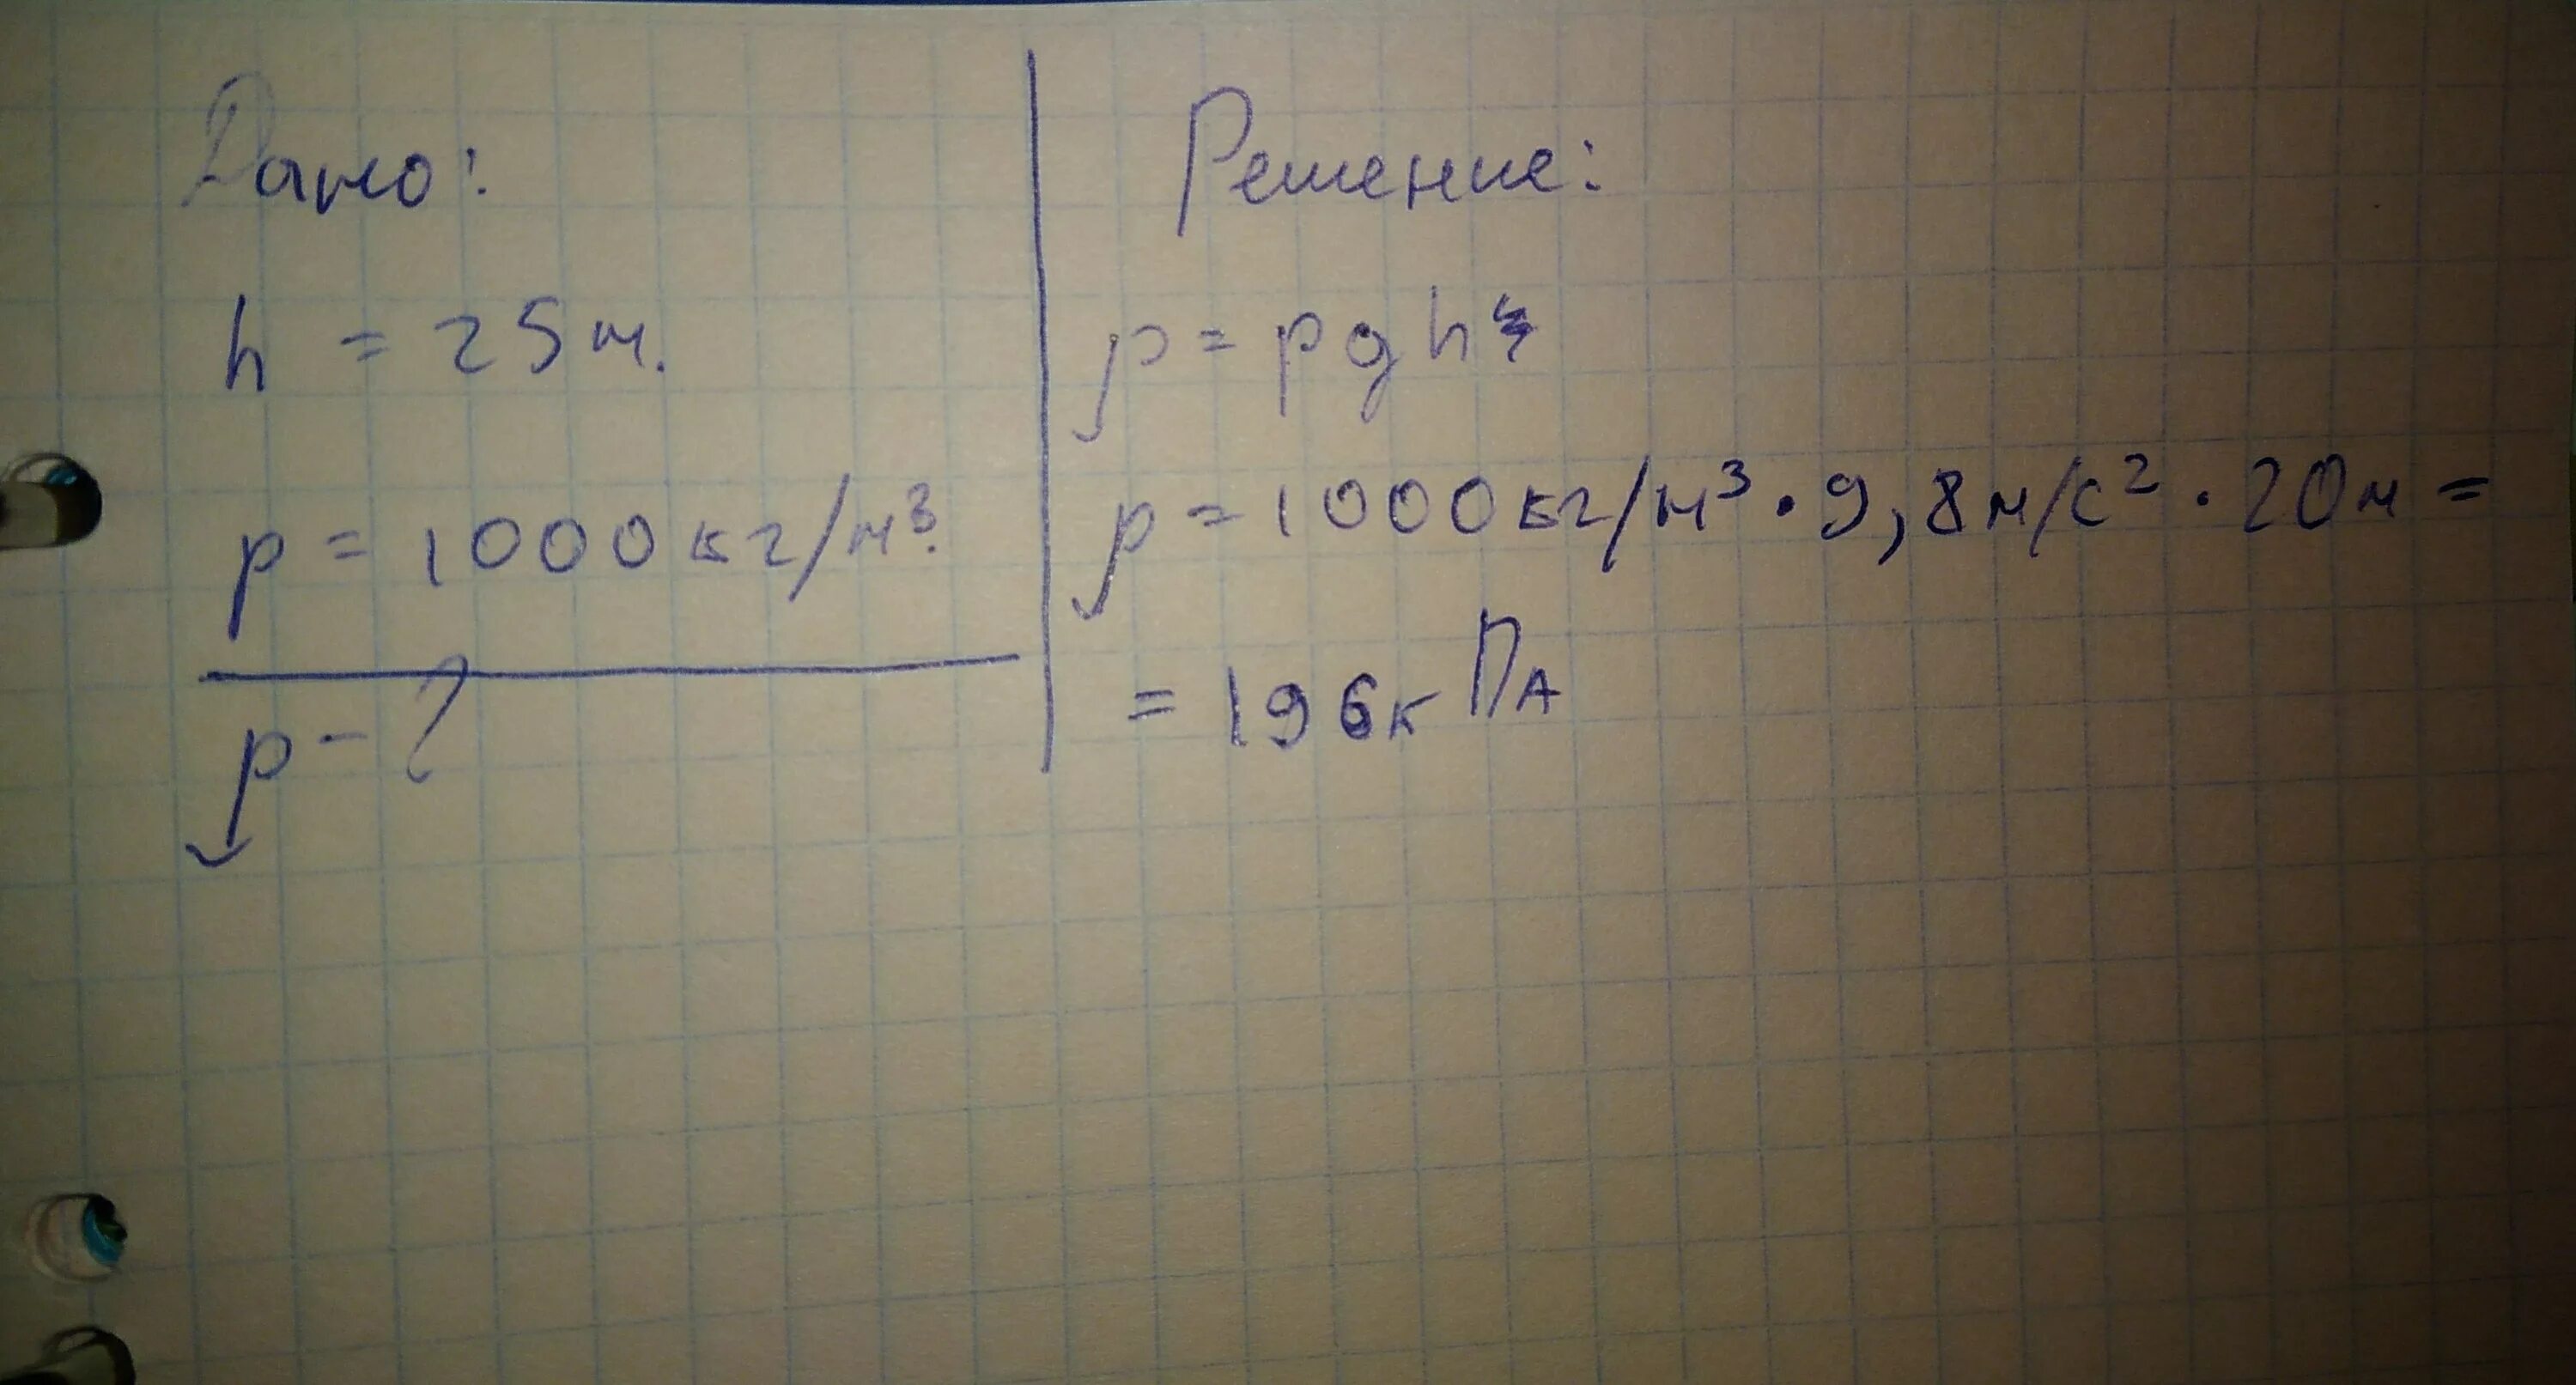 Дано:
h = 25м.
p = 1000кг/м³.
p - ?
Решение:
p = pgh
p = 1000кг/м³ · 9,8м/с² · 20м =
= 196кПа